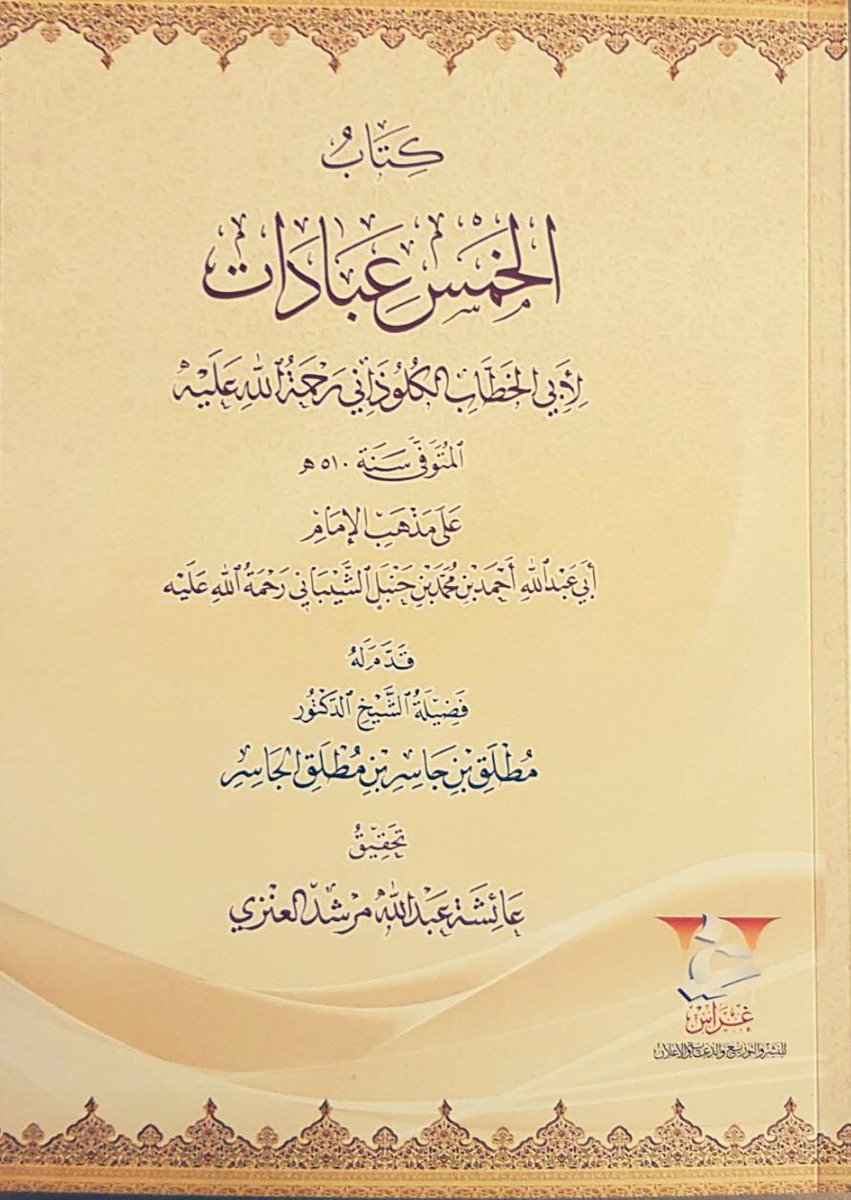 كِتَابُ
الخَمْسِ عِبَادَات
لِأَبِي الخَطَّابِ الكَلُوذَانِي رَحْمَةُ اللهِ عَلَيْهِ
المُتَوَفَّى سَنَة ٥١٠ هـ
عَلَى مَذْهَبِ الإِمَامِ
أَبِي عَبْدِ اللهِ أَحْمَدَ بْنِ مُحَمَّدِ بْنِ حَنْبَلٍ الشَّيْبَانِي رَحْمَةُ اللهِ عَلَيْه
قَدَّمَ لَهُ
فَضِيلَةُ الشَّيْخِ الدَّكْتُور
مُطْلَق بْن جَاسِر بْنِ مُطْلَق الجَاسِر
تَحْقِيقُ
عَائِشَة عَبْدُ الله مرشد العنزي
غِرَاس
للنشر والتوزيع والدعاية والإعلان